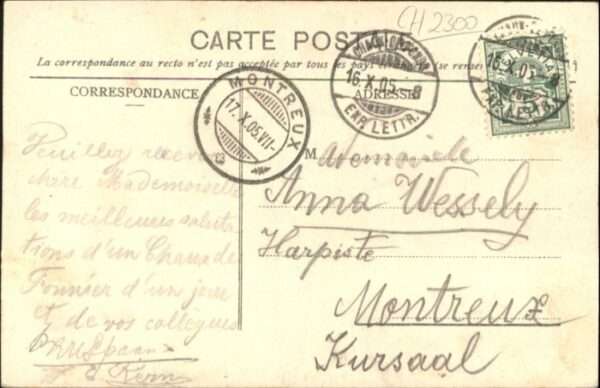 CH 2300
CARTE POSTALE
La correspondance au recto n'est pas acceptée par tous les pays
CORRESPONDANCE
ADRESSE
MONTREUX
17.X.05.VII-
16.X.05.-8
EXP. LETTR.
16.X.05.-8
EXP. LETTR.
M ademoiselle
Anna Wessely
Harpiste
Montreux
Kursaal
Veuillez recevoir
chère Mademoiselle
les meilleures saluta
tions d'un Chaux de
Fonnier d'un jour
et de vos collègues